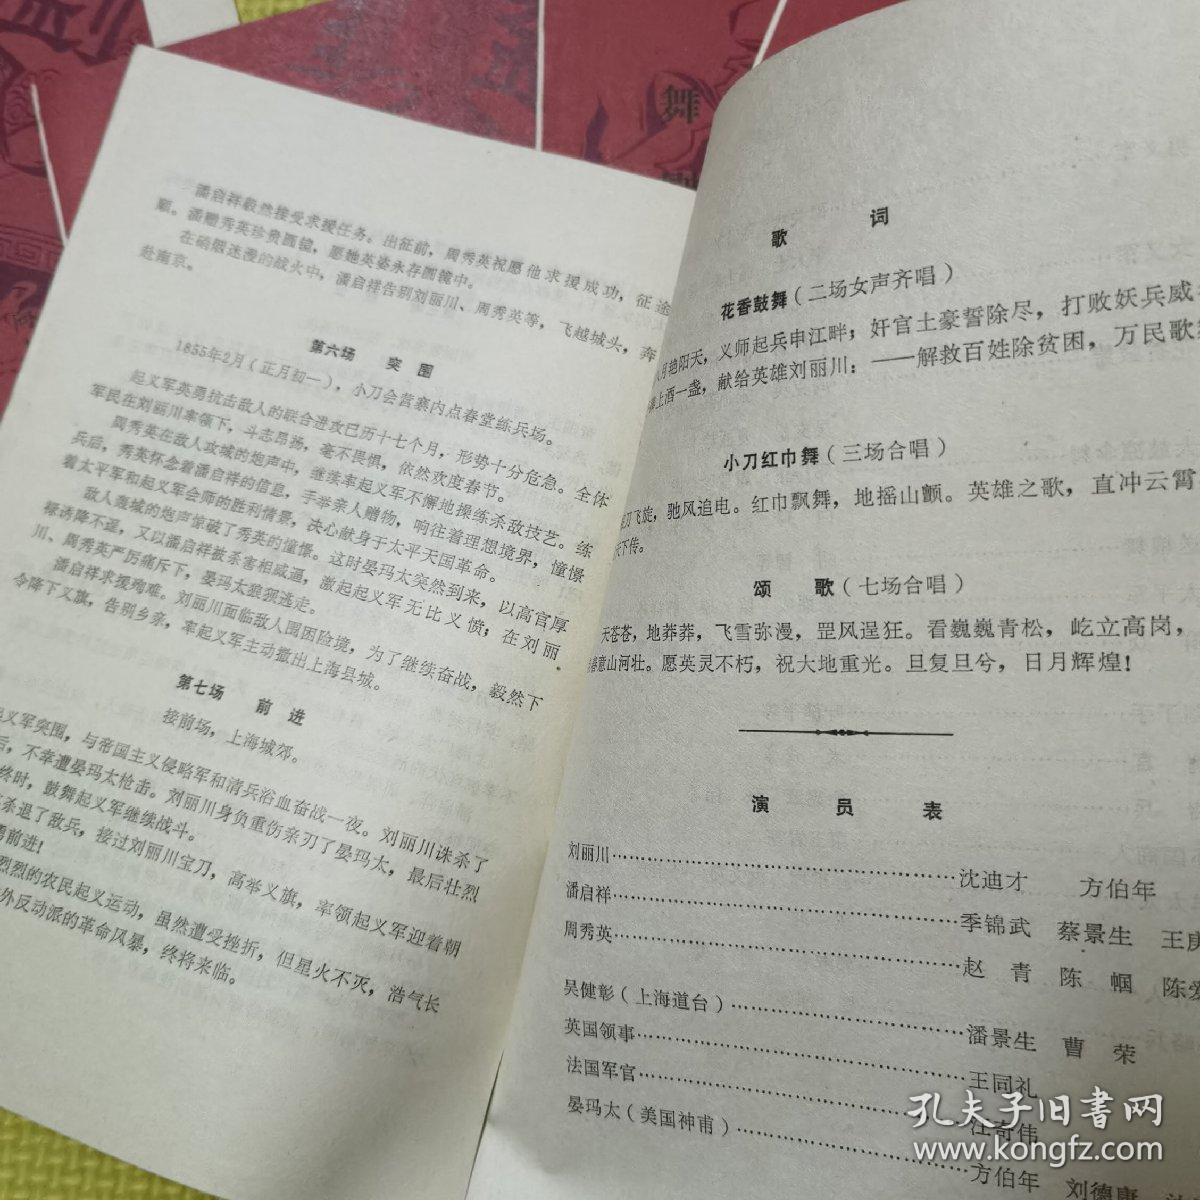 舞
潘启祥毅然接受求援任务。出征前，周秀英祝愿他求援成功，征途
顺。潘赠秀英珍贵圆镜，愿她英姿永存圆镜中。
在硝烟迷漫的战火中，潘启祥告别刘丽川、周秀英等，飞越城头，奔
赴南京。
第六场 突围
1855年2月（正月初一），小刀会营寨内点春堂练兵场。
起义军英勇抗击敌人的联合进攻已历十七个月，形势十分危急。全体
军民在刘丽川率领下，斗志昂扬，毫不畏惧，依然欢度春节。
周秀英在敌人攻城的炮声中，继续率起义军不懈地操练杀敌技艺。练
兵后，秀英怀念着潘启祥的信息，手举亲人赠物，响往着理想境界，憧憬
着太平军和起义军会师的胜利情景，决心献身于太平天国革命。
敌人轰城的炮声惊破了秀英的憧憬。这时晏玛太突然到来，以高官厚
禄诱降不逞，又以潘启祥被杀害相威逼，激起起义军无比义愤；在刘丽
川、周秀英严厉痛斥下，晏玛太狼狈逃走。
潘启祥求援殉难。刘丽川面临敌人围困险境，为了继续奋战，毅然下
令降下义旗，告别乡亲，率起义军主动撤出上海县城。
第七场 前进
接前场，上海城郊。
起义军突围，与帝国主义侵略军和清兵浴血奋战一夜。刘丽川诛杀了
后，不幸遭晏玛太枪击。刘丽川身负重伤亲刃了晏玛太，最后壮烈
终时，鼓舞起义军继续战斗。
杀退了敌兵，接过刘丽川宝刀，高举义旗，率领起义军迎着朝
勇前进！
烈烈的农民起义运动，虽然遭受挫折，但星火不灭，浩气长
外反动派的革命风暴，终将来临。
歌词
花香鼓舞（二场女声齐唱）
月艳阳天，义师起兵申江畔；奸官土豪誓除尽，打败妖兵威
上酒一盏，献给英雄刘丽川；——解救百姓除贫困，万民歌
小刀红巾舞（三场合唱）
刀飞旋，驰风追电。红巾飘舞，地摇山颤。英雄之歌，直冲云霄
天下传。
颂歌（七场合唱）
天苍苍，地莽莽，飞雪弥漫，罡风逞狂。看巍巍青松，屹立高岗，
意山河壮。愿英灵不朽，祝大地重光。旦复旦兮，日月辉煌！
演员表
刘丽川……沈迪才 方伯年
潘启祥……季锦武 蔡景生 王庚
周秀英……赵青 陈帼 陈爱
吴健彰（上海道台）……潘景生 曹荣
英国领事……王同礼
法国军官……汪奇伟
晏玛太（美国神甫）……方伯年 刘德康
孔夫子旧书网
www.kongfz.com